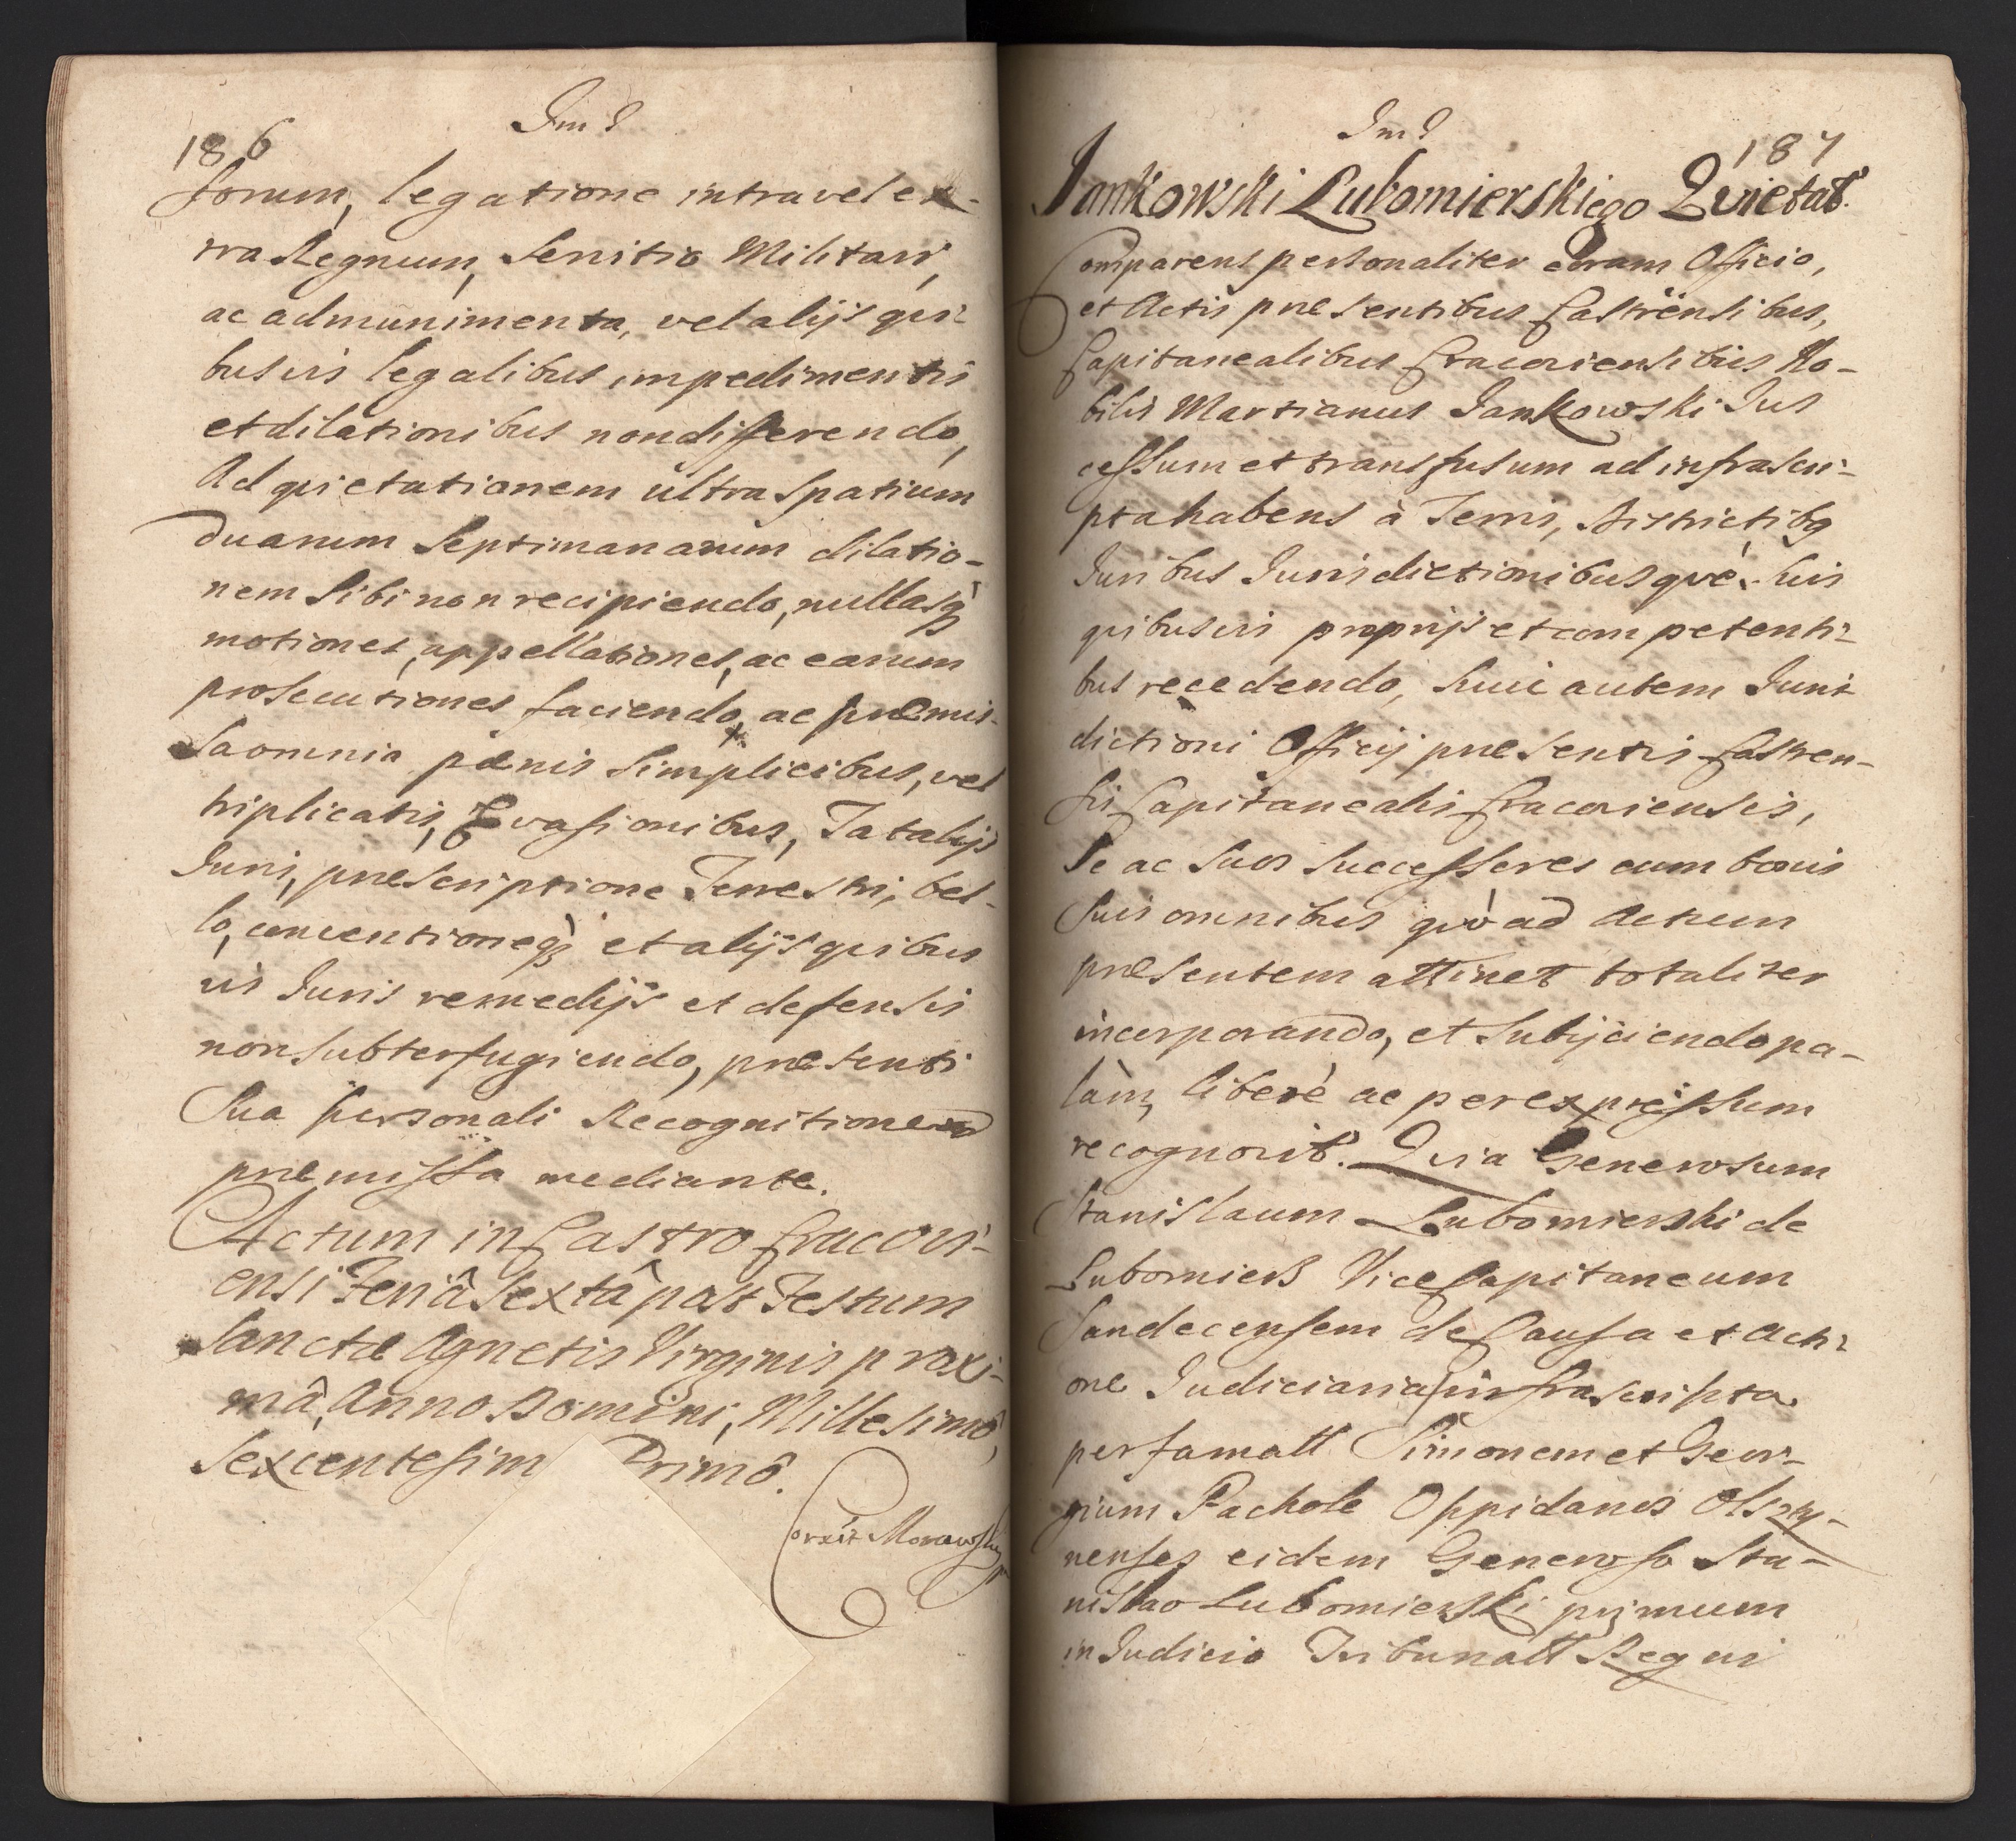 186
forum, legatione intra vel ex-
tra Regnum, Servitio Militari,
ac admunimenta, vel alijs qui-
busvis legalibus impedimentis
et dilationibus non differendo,
Ad quietationem ultra spatium
duarum Septimanarum dilatio-
nem sibi non recipiendo, nullasq
motiones, appellationes, ac earum
prosecutiones faciendo, ac præmis-
sa omnia pænis simplicibus, vel
triplicatis, Evasionibus,
Juri, præscriptione Terrestri, bel-
lo, conventioneq et alijs quibus
vis Juris remedijs et defensis
non subterfugiendo, præsenti
Sua personali Recognitione
præmissa mediante.
Actum in Castro Cracovi-
ensi Feriâ Sextâ post Festum
Sanctæ Agnetis Virginis proxi-
mâ, Anno Domini, Millesimô,
Sexcentesim Primô.
187
Jankowski Lubomierskiego Quietat.
Comparens personaliter coram Officio,
et Actis præsentibus Castrensibus,
Capitanealibus Cracoviensibus No-
bilis Martianus Jankowski Jus
cessum et transfusum ad infrascri-
pta habens à Terris, Districtibq
Juribus Jurisdictionibusquè suis
quibusvis proprijs et competenti-
bus recedendo, huic autem Juris-
dictioni Officij præsentis Castren-
sis Capitanealis Cracoviensis,
Se ac suos successores cum bonis
suis omnibus quò ad Actum
præsentem attinet totaliter
incorporando, et subijciendo pa-
làm, liberè ac per expressum
recognovit. Quia Generosum
Stanislaum Lubomierski de
Lubomierz Vice Capitaneum
Sandecensem de Causa et Acti-
one Judiciaria infrascripta
per famatt Simonem et Geor-
gium Pachole Oppidanos Olszty-
nenses eidem Generoso Sta-
nislao Lubomierski primum
in Judicio Tribunall Regni